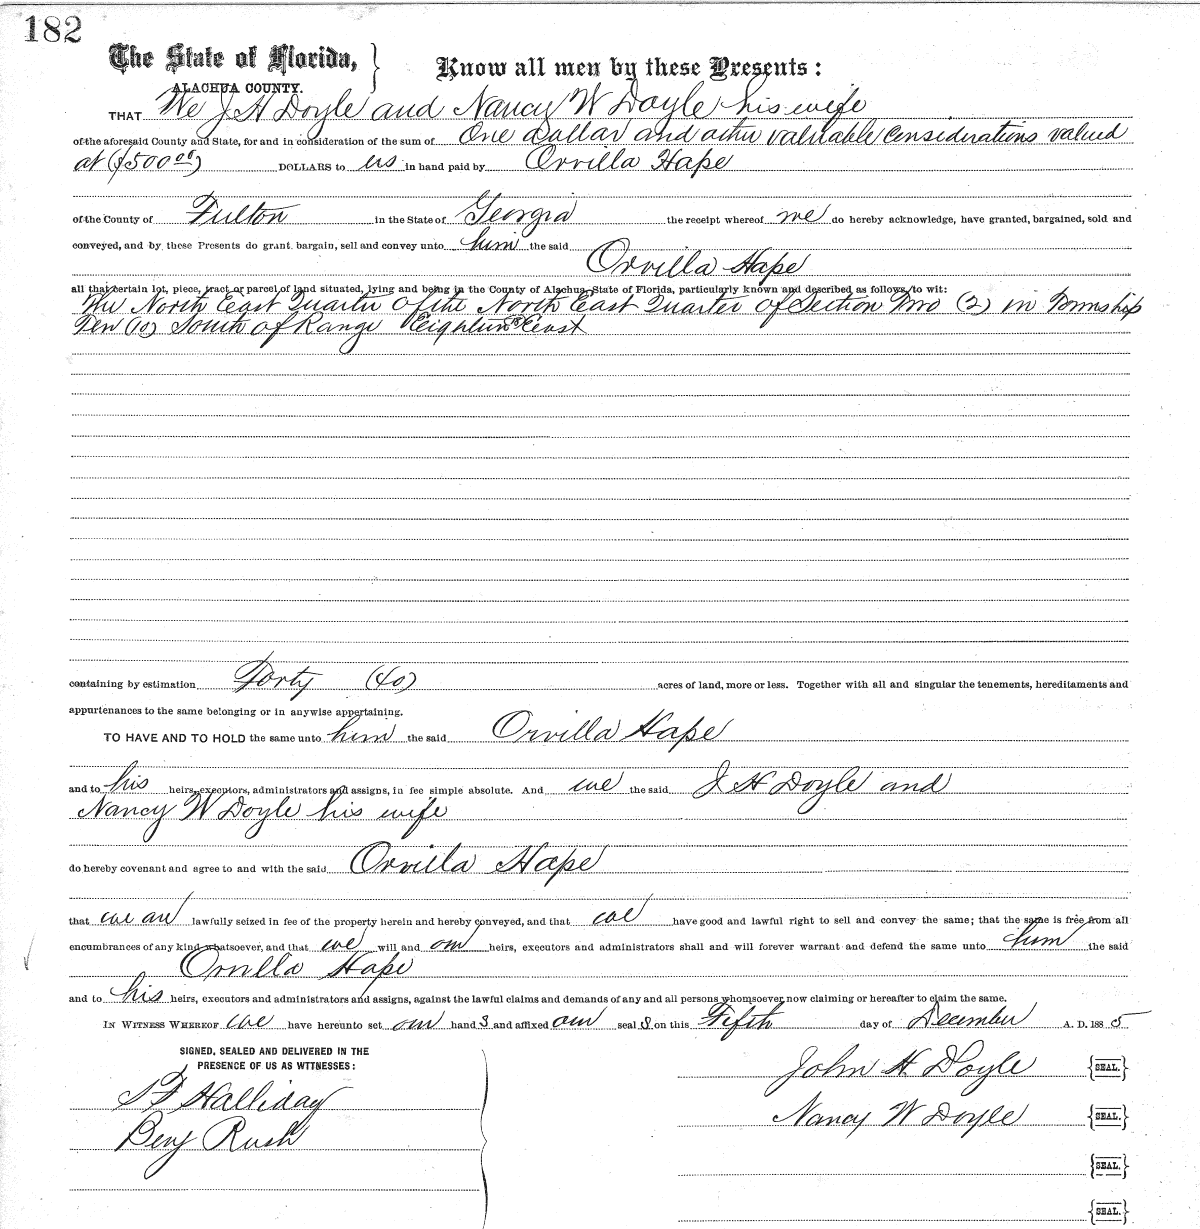 182
The State of Florida,
ALACHUA COUNTY.
Know all men by these Presents:
THAT We J H Doyle and Nancy W Doyle his wife
of the aforesaid County and State, for and in consideration of the sum of One dollar and other valuable considerations valued
at ($500 00) DOLLARS to us in hand paid by Orvilla Hape
of the County of Fulton in the State of Georgia the receipt whereof we do hereby acknowledge, have granted, bargained, sold and
conveyed, and by these Presents do grant, bargain, sell and convey unto him the said
Orvilla Hape
all that certain lot, piece, tract or parcel of land situated, lying and being in the County of Alachua, State of Florida, particularly known and described as follows, to wit:
The North East Quarter of the North East Quarter of Section Two (2) in Township
Ten (10) South of Range Eighteen East
containing by estimation Forty (40) acres of land, more or less. Together with all and singular the tenements, hereditaments and
appurtenances to the same belonging or in anywise appertaining.
TO HAVE AND TO HOLD the same unto him the said Orvilla Hape
and to his heirs, executors, administrators and assigns, in fee simple absolute. And we the said J H Doyle and
Nancy W Doyle his wife
do hereby covenant and agree to and with the said Orvilla Hape
that we are lawfully seized in fee of the property herein and hereby conveyed, and that we have good and lawful right to sell and convey the same; that the same is free from all
encumbrances of any kind whatsoever, and that we will and our heirs, executors and administrators shall and will forever warrant and defend the same unto him the said
Orvilla Hape
and to his heirs, executors and administrators and assigns, against the lawful claims and demands of any and all persons whomsoever now claiming or hereafter to claim the same.
IN WITNESS WHEREOF we have hereunto set our hand s and affixed our seal s on this Fifth day of December A. D. 188 5
SIGNED, SEALED AND DELIVERED IN THE
PRESENCE OF US AS WITNESSES:
S F Halliday
Benj Rush
John H Doyle {SEAL.}
Nancy W Doyle {SEAL.}
{SEAL.}
{SEAL.}